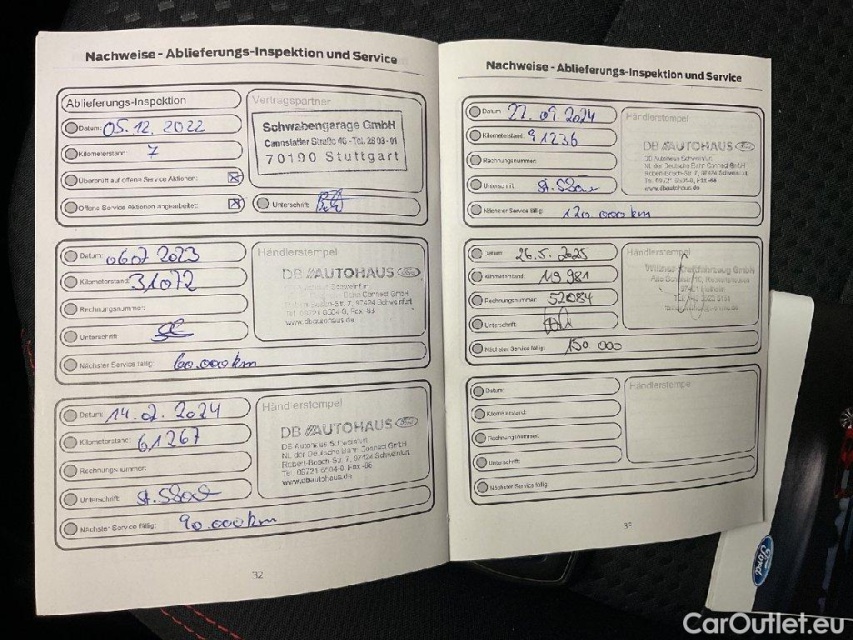 Nachweise - Ablieferungs-Inspektion und Service
Ablieferungs-Inspektion
Datum: 05.12.2022
Kilometerstand: 7
Überprüft auf offene Service Aktionen:
Offene Service Aktionen angearbeitet:
Vertragspartner
Schwabengarage GmbH
Cannstatter Straße 46 - Tel. 28 03-01
70190 Stuttgart
Unterschrift:
Datum: 06.07.2023
Kilometerstand: 31072
Rechnungsnummer:
Unterschrift:
Nächster Service fällig: 60.000 km
Händlerstempel
DB AUTOHAUS Ford
www.dbautohaus.de
Datum: 14.02.2024
Kilometerstand: 61267
Rechnungsnummer:
Unterschrift:
Nächster Service fällig: 90.000 km
Händlerstempel
DB AUTOHAUS Ford
DB Autohaus Schweinfurt
NL der Deutsche Bahn Connect GmbH
Robert-Bosch-Str. 7, 97424 Schweinfurt
www.dbautohaus.de
32
Nachweise - Ablieferungs-Inspektion und Service
Datum: 27.09.2024
Kilometerstand: 91236
Rechnungsnummer:
Unterschrift:
Nächster Service fällig: 120.000 km
Händlerstempel
DB AUTOHAUS Ford
DB Autohaus Schweinfurt
NL der Deutsche Bahn Connect GmbH
Robert-Bosch-Str. 7, 97424 Schweinfurt
www.dbautohaus.de
Datum: 26.5.2025
Kilometerstand: 119 981
Rechnungsnummer: 52084
Unterschrift:
Nächster Service fällig: 150 000
Händlerstempel
Datum:
Kilometerstand:
Rechnungsnummer:
Unterschrift:
Nächster Service fällig:
Händlerstempel
Ford
CarOutlet.eu